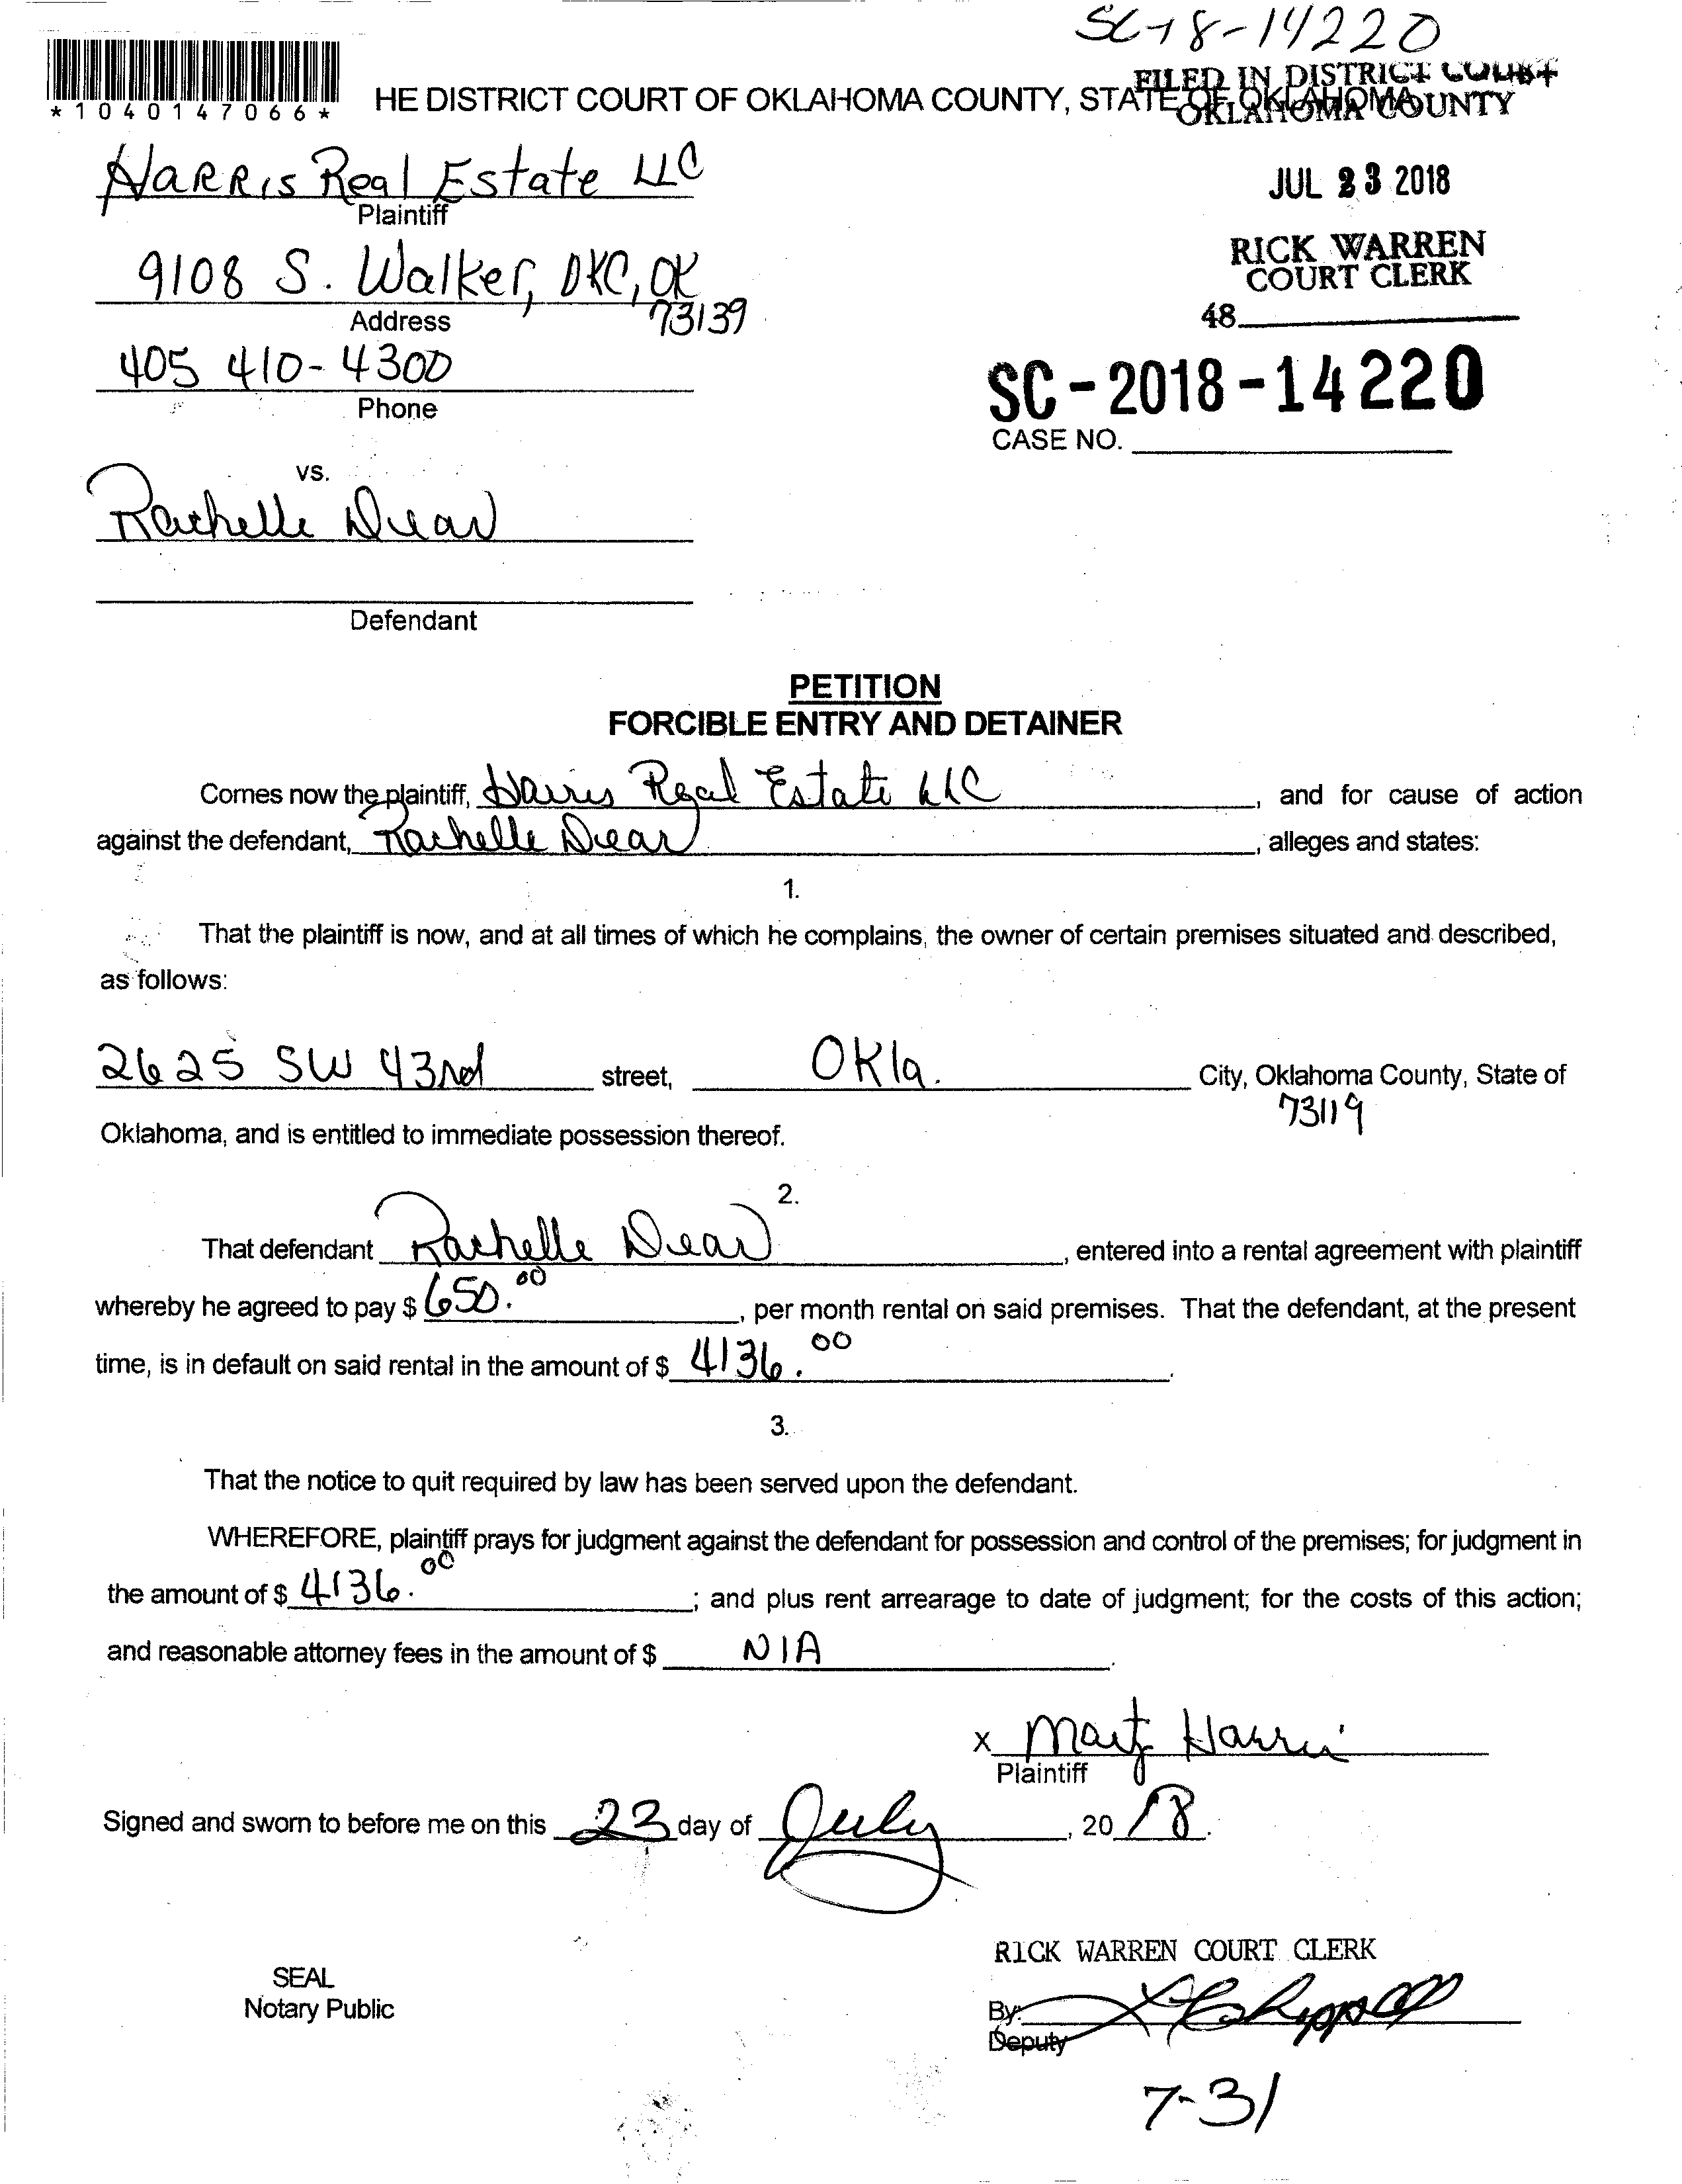 SC-18-14220
*1040147066*
HE DISTRICT COURT OF OKLAHOMA COUNTY, STATE OF OKLAHOMA
FILED IN DISTRICT COURT
OKLAHOMA COUNTY
HARRIS Real Estate LLC
Plaintiff
JUL 23 2018
RICK WARREN
COURT CLERK
9108 S. Walker, OKC, OK
73139
Address
48
405 410-4300
Phone
SC-2018-14220
CASE NO.
vs.
Rachelle Drear
Defendant
PETITION
FORCIBLE ENTRY AND DETAINER
Comes now the plaintiff, Harris Real Estate LLC, and for cause of action
against the defendant, Rachelle Drear, alleges and states:
1.
That the plaintiff is now, and at all times of which he complains, the owner of certain premises situated and described,
as follows:
2625 SW 43rd street, Okla. City, Oklahoma County, State of
73119
Oklahoma, and is entitled to immediate possession thereof.
2.
That defendant Rachelle Drear, entered into a rental agreement with plaintiff
whereby he agreed to pay $ 650.00, per month rental on said premises. That the defendant, at the present
time, is in default on said rental in the amount of $ 4136.00.
3.
That the notice to quit required by law has been served upon the defendant.
WHEREFORE, plaintiff prays for judgment against the defendant for possession and control of the premises; for judgment in
the amount of $ 4136.00; and plus rent arrearage to date of judgment; for the costs of this action;
and reasonable attorney fees in the amount of $ N/A.
x Marty Harris
Plaintiff
Signed and sworn to before me on this 23 day of July, 2018.
RICK WARREN COURT CLERK
SEAL
Notary Public
By:
Deputy
7-31